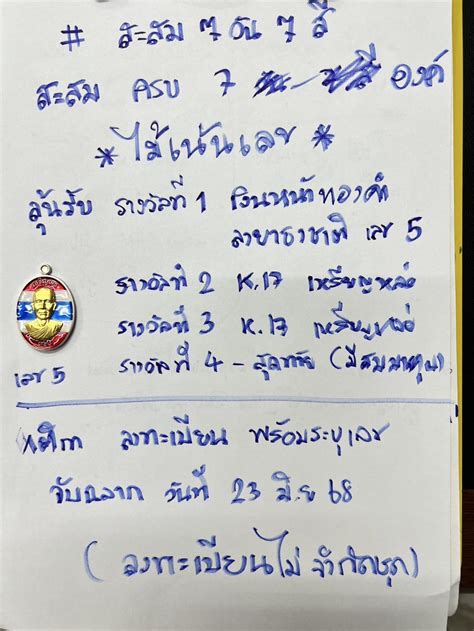 # สะสม 7 วัน 7 สี
สะสม ครบ 7 สี องค์
* ไม่เน้นเลข *
ลุ้นรับ รางวัลที่ 1 เงินหน้าทองคำ
ลายาธงชาติ เลข 5
รางวัลที่ 2 K.17 เหรียญหล่อ
รางวัลที่ 3 K.17 เหรียญหล่อ
เลข 5 รางวัลที่ 4 - สุดท้าย (มีสมนาคุณ)
กติกา ลงทะเบียน พร้อมระบุเลข
จับฉลาก วันที่ 23 มิ.ย 68
( ลงทะเบียนไม่จำกัดชุด)